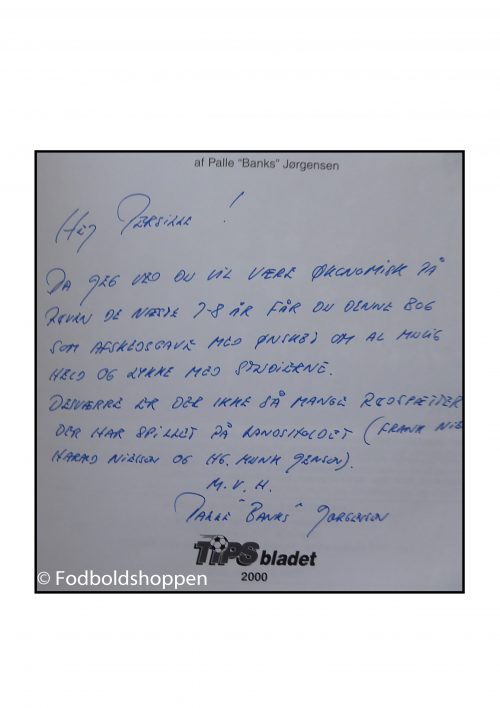 af Palle "Banks" Jørgensen
Hej Persille!
Da jeg ved du vil være økonomisk på
røven de næste 7-8 år får du denne bog
som afskedsgave med ønsket om al mulig
held og lykke med studierne.
Desværre er der ikke så mange rødspætter
der har spillet på landsholdet (Frank Nie
Harald Nielsen og Hg. Munk Jensen).
M.V.H.
Palle "Banks" Jørgensen
TiPS bladet
2000
© Fodboldshoppen